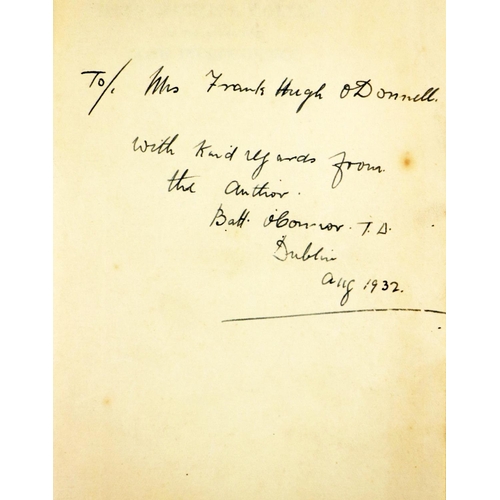 To/. Mrs Frank Hugh O'Donnell.
with kind regards from
the Author.
Batt. O'Connor. T.D.
Dublin
Aug 1932.